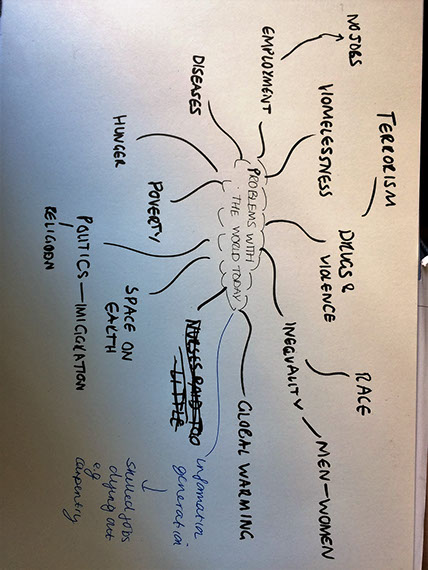 TERRORISM
RACE
NO JOBS
DRUGS &
VIOLENCE
MEN—WOMEN
HOMELESSNESS
INEQUALITY
EMPLOYMENT
GLOBAL WARMING
PROBLEMS WITH
THE WORLD TODAY
DISEASES
NURSES PAID TOO
LITTLE
information
generation
POVERTY
SPACE ON
EARTH
HUNGER
skilled jobs
dying out
e.g
carpentry
POLITICS — IMIGRATION
RELIGION